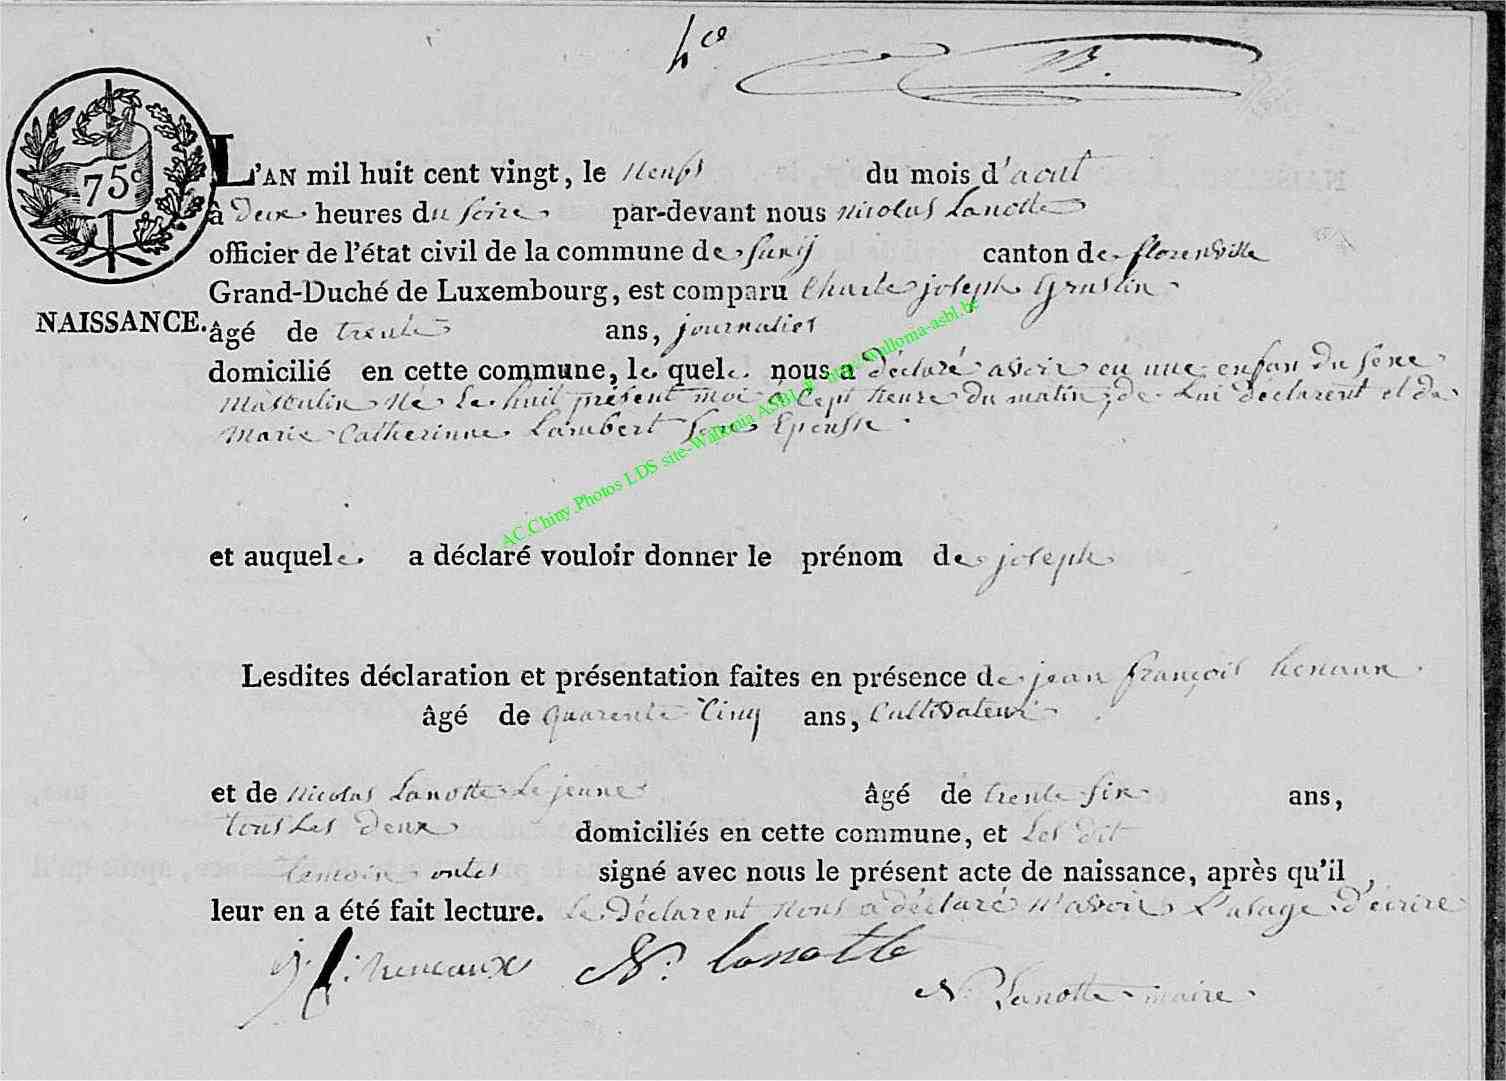 hce
75c
L'AN mil huit cent vingt, le neuf du mois d'aout
à deux heures du soire par-devant nous nicolas Lanotte
officier de l'état civil de la commune de suxÿ canton de florenville
Grand-Duché de Luxembourg, est comparu Charle joseph Grustin
NAISSANCE. âgé de trente ans, journalier
domicilié en cette commune, le quel nous a déclaré avoir eu une enfan du sexe
masculin né le huit présent moi a Sept heure du matin, de Lui déclarent et de
Marie Catherinne Lambert son Epousse
et auquel a déclaré vouloir donner le prénom de joseph
Lesdites déclaration et présentation faites en présence de jean françois henaux
âgé de quarente Cinq ans, Cultivateur
et de nicolas Lanotte Le jeune âgé de trente six ans,
tous Les deux domiciliés en cette commune, et Les dit
temoin ontes signé avec nous le présent acte de naissance, après qu'il
leur en a été fait lecture. Le déclarent nous a déclaré n'avoir L'usage d'écrire
j. f. heneaux N. Lanotte
N. Lanotte maire
AC.Chiny.Photos LDS site-Wallonia ASBL # www.wallonia-asbl.be